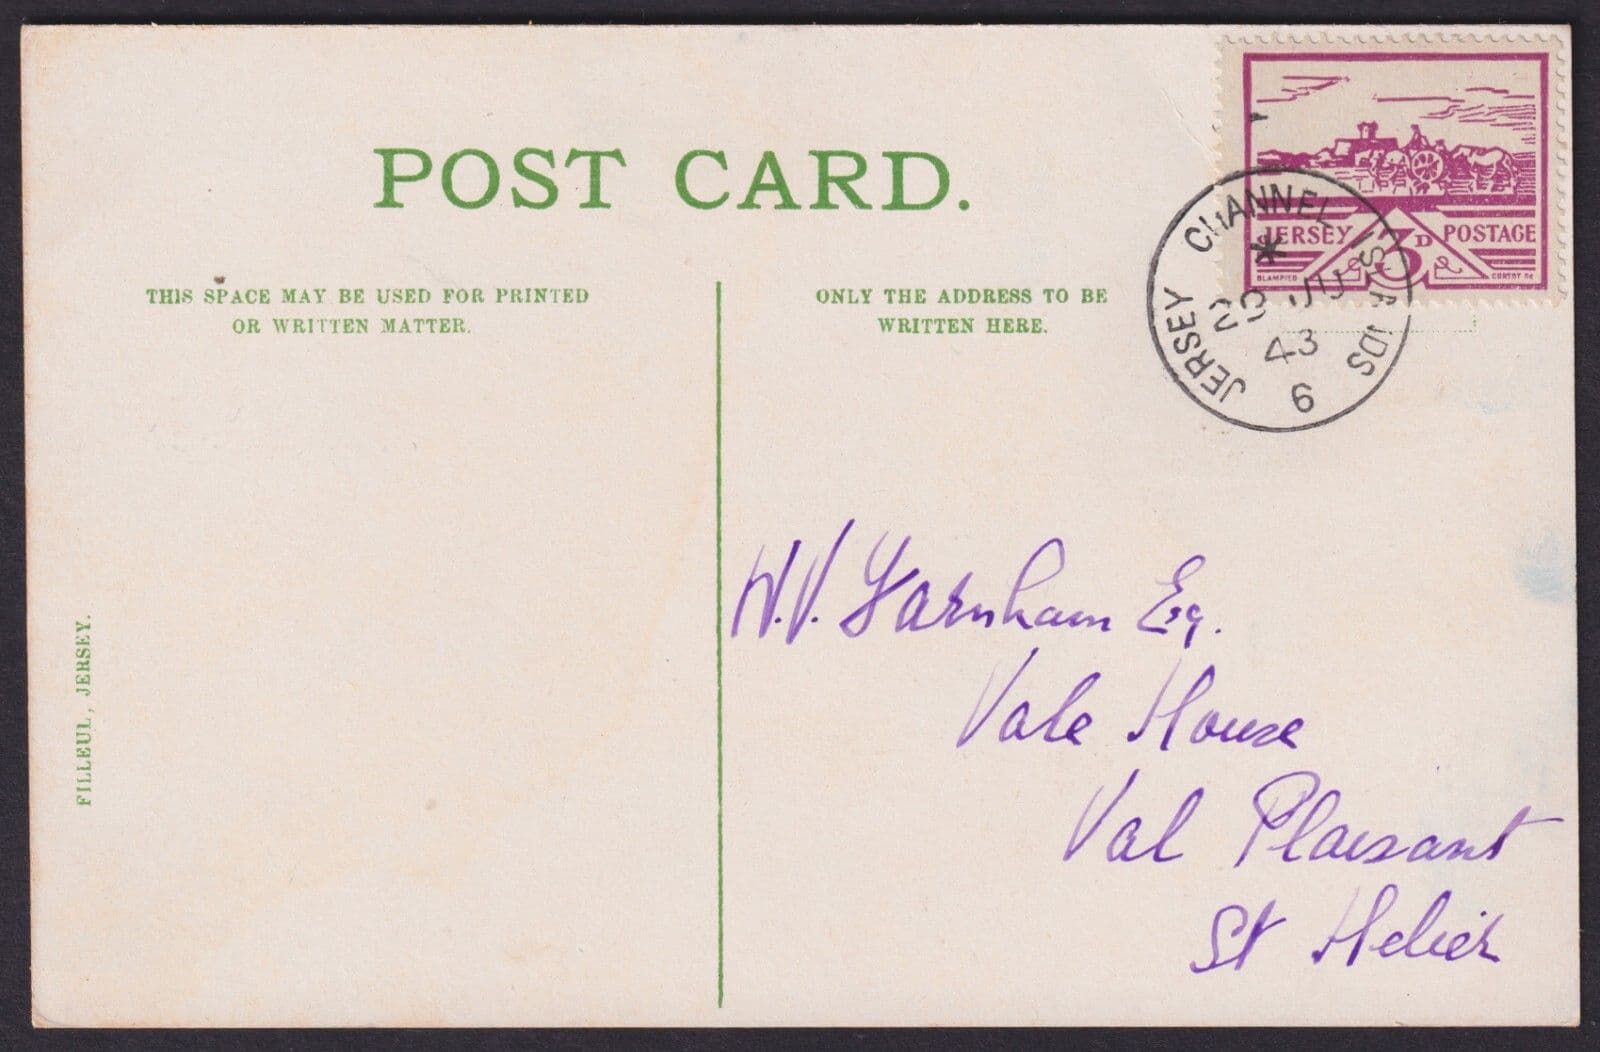 POST CARD.
THIS SPACE MAY BE USED FOR PRINTED
OR WRITTEN MATTER.
ONLY THE ADDRESS TO BE
WRITTEN HERE.
JERSEY 3D POSTAGE
BLAMPIED
JERSEY CHANNEL ISLANDS
JU
43
6
V. Farnham Esq.
Vale House
Val Plaisant
St Helier
FILLEUL, JERSEY.